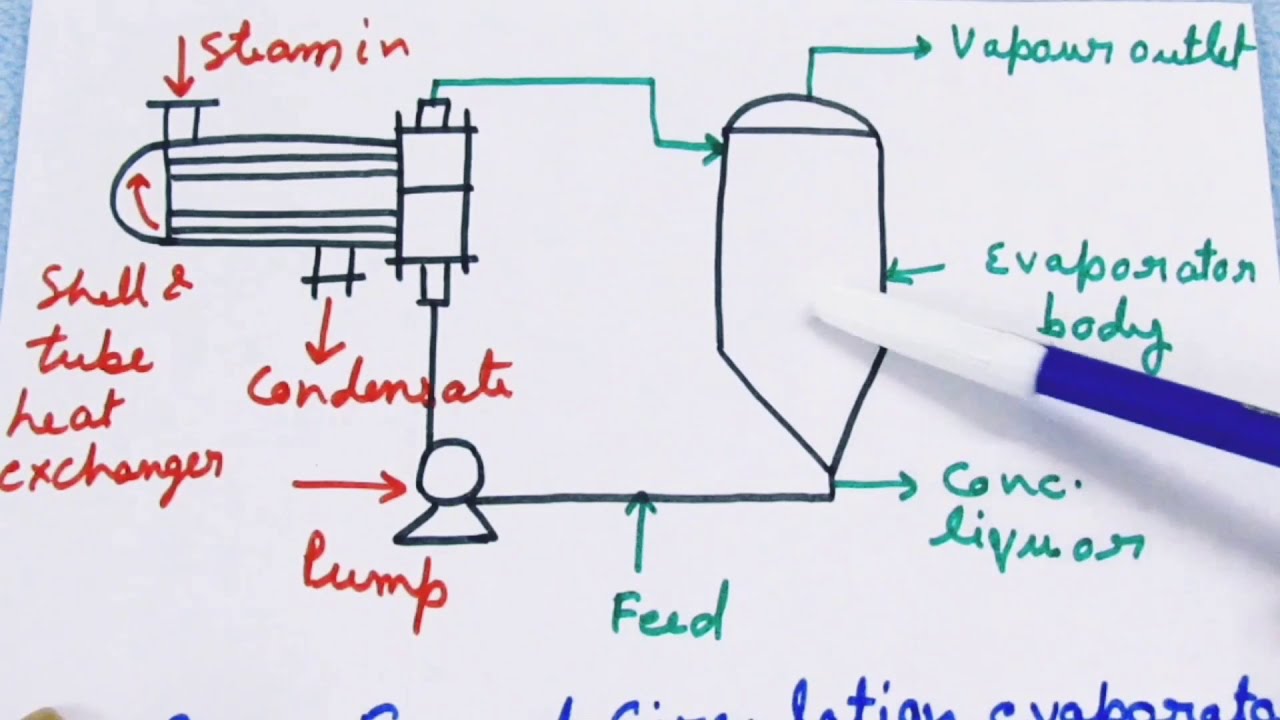 Steam in
Vapour outlet
Shell &
tube
heat
exchanger
Condensate
Evaporator
body
Pump
Feed
Conc.
liquor
Circulation evaporato